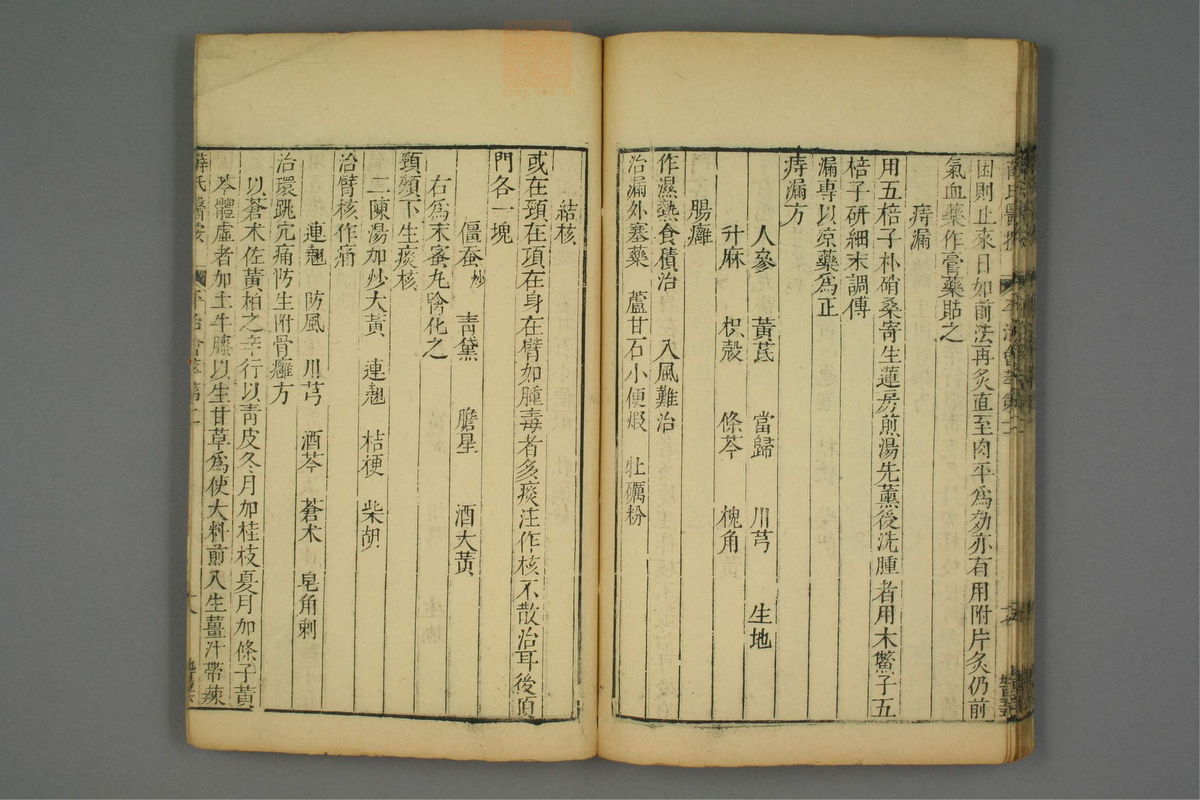 困則止來日如前法再灸直至肉平爲効亦有用附片灸仍前
氣血藥作膏藥貼之
痔漏
用五棓子朴硝桑寄生蓮房煎湯先薰後洗腫者用木鱉子五
棓子研細末調傅
漏專以涼藥爲正
痔漏方
人參 黃芪 當歸 川芎 生地
升麻 枳殼 條芩 槐角
腸癰
作濕熱食積治 入風難治
治漏外塞藥 蘆甘石小便煅 牡礪粉
結核
或在頸在項在身在臂如腫毒者多痰注作核不散治耳後項
門各一塊
僵蚕炒 靑黛 膽星 酒大黃
右爲末蜜丸噙化之
頸頰下生痰核
二陳湯加炒大黃 連翹 桔梗 柴胡
治臂核作痛
連翹 防風 川芎 酒芩 蒼朮 皂角刺
治環跳穴痛防生附骨癰方
以蒼朮佐黃柏之辛行以靑皮冬月加桂枝夏月加條子黃
芩體虛者加土牛膝以生甘草爲使大料煎入生薑汁帶辣
薛氏醫案 平治會萃第二